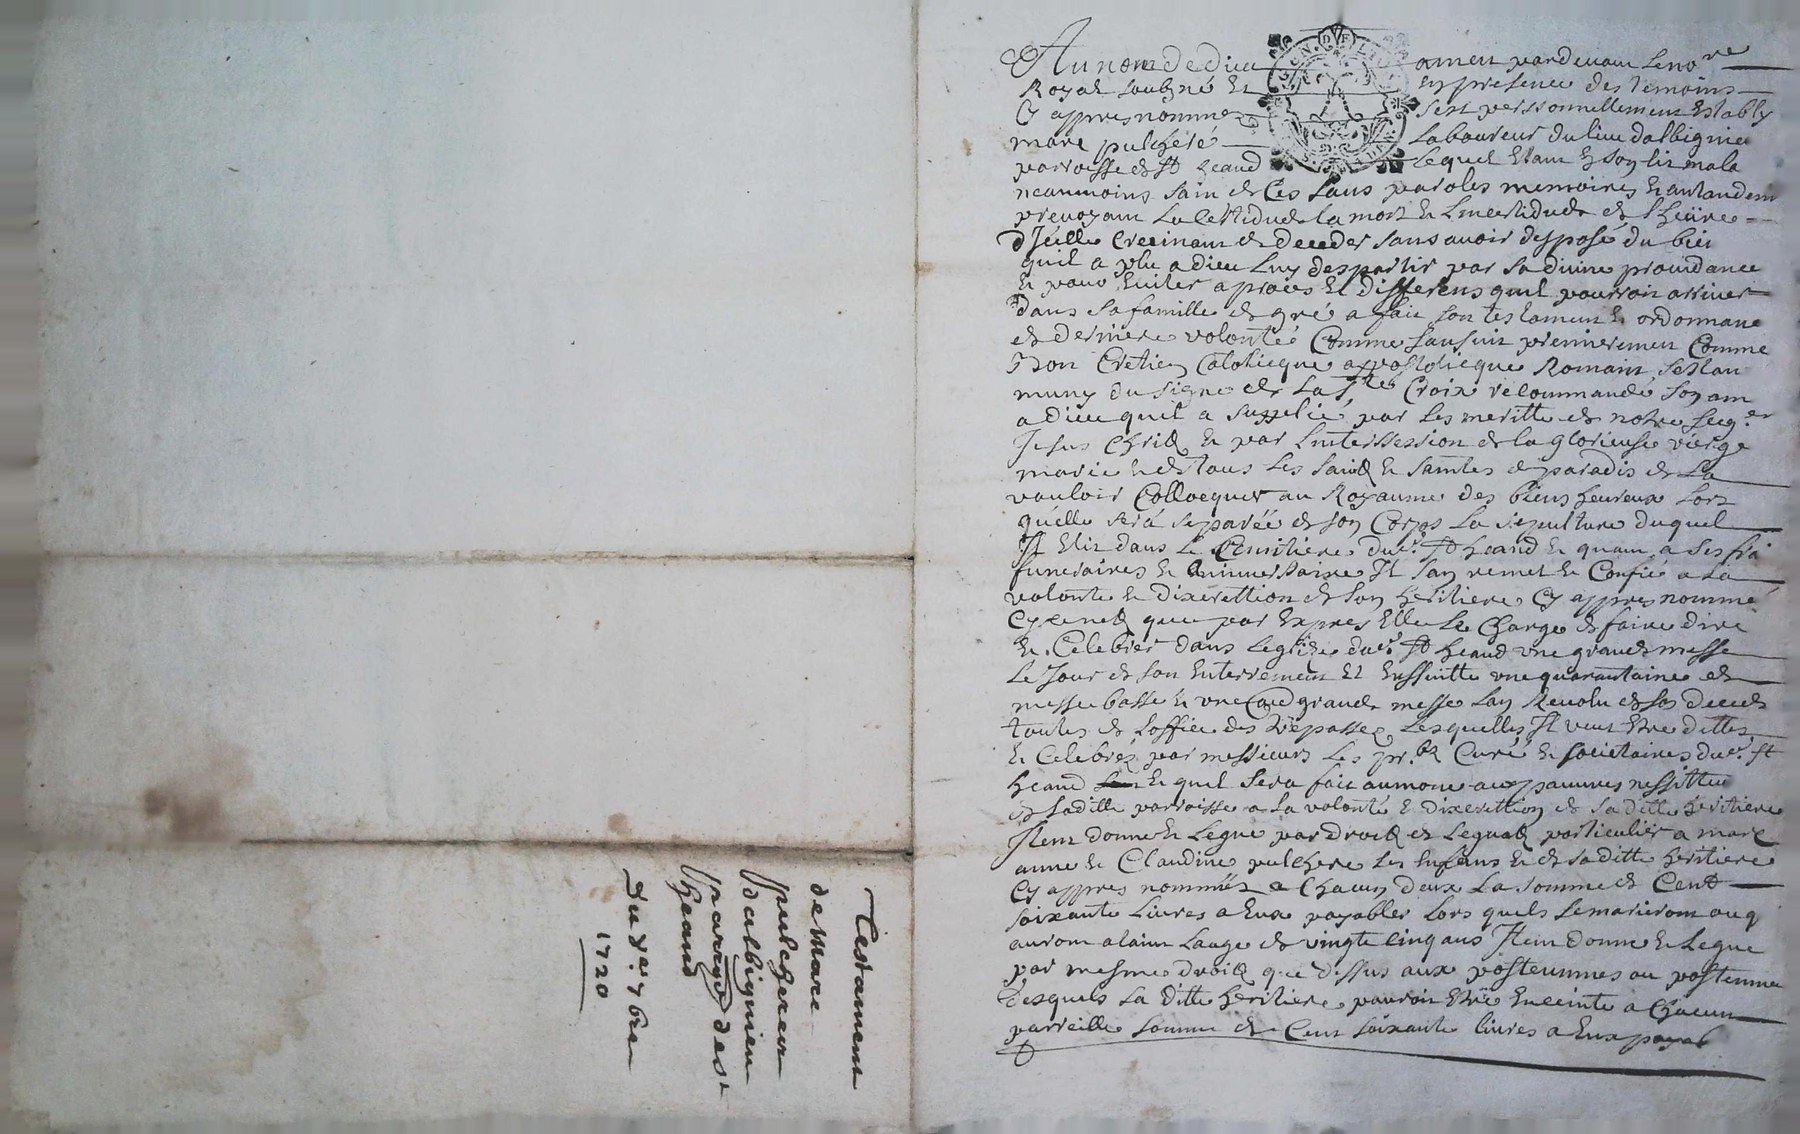 Au nom de dieu amen pardevant le no.re
Royal soubsné et en presence des temoins
Cy appres nommez sest personnellement estably
marc pulchéré laboureur du lieu dalbignieu
parroisse de st heand lequel etant en son lit malade
neanmoins sain de ces sans paroles memoires et antandem
prevoyant la Certidude la mort et lincertidude de lheure
dJcelle Creeinant de deceder sans avoir desposé du bien
quil a plu a dieu luy despartir par sa divine providance
et pour eviter a proces et differens quil pourroit arriver
dans sa famille de gré a fait son testament et ordonnance
de derniere volonté Comme sansuit premierement Comme
bon Cretien Catolicque appostolicque Romain sestan
muny du signe de la s.te Croix recommandé son am
a dieu quil a supplié par les meritte de notre seig.er
Jesus christ et par lintersession de la glorieuse vierge
marie et de tous les saints et saintes de paradis de la
vouloir Collocquer au Royaume des biens heureux lors
quelle sera separée de son Corps la sepulture duquel
Jl elit dans le Cemitiere dud. st heand et quant a ses frai
funeraires et anniversaire Jl san remet et Confié a la
volonte et dixerettion de son heritiere Cy appres nommé
Cy ce nest que par expres elle le charge de faire dire
et Celebrer dans leglize dud. st heand une grande messe
le Jour de son enterrement et enssuitte une quarantaine de
messe basse et une grande messe lan Revolu de son deceds
toutes de loffice des trepassez lesquelles Jl veut etre dittes
et Celebréz par messieurs les pr.bt Curé et societaires dud. st
heand et quil sera fait aumone aux pauvres nessitteu
de laditte parroisse a la volonté et dixerettion de sa ditte heritiere
Jtem donne et legue par droit de legnat particulier a marc
anne et Claudine pulchere les enfans et de saditte heritiere
Cy appres nommés a chacun deux la somme de Cent
soixante livres a eux payables lors quels semarieront ou q
auront alaint lauge de vingte cinq ans Jtem donne et legue
par mesme droit que dessus aux posteummes ou posteume
desquels la ditte heritiere pourroit etre enceinte a chacun
parreille somme de Cent soixante livres a eux payab
Testament
de Marc
pulchereur
dalbignieu
parroisse de st
heand
Du
1720